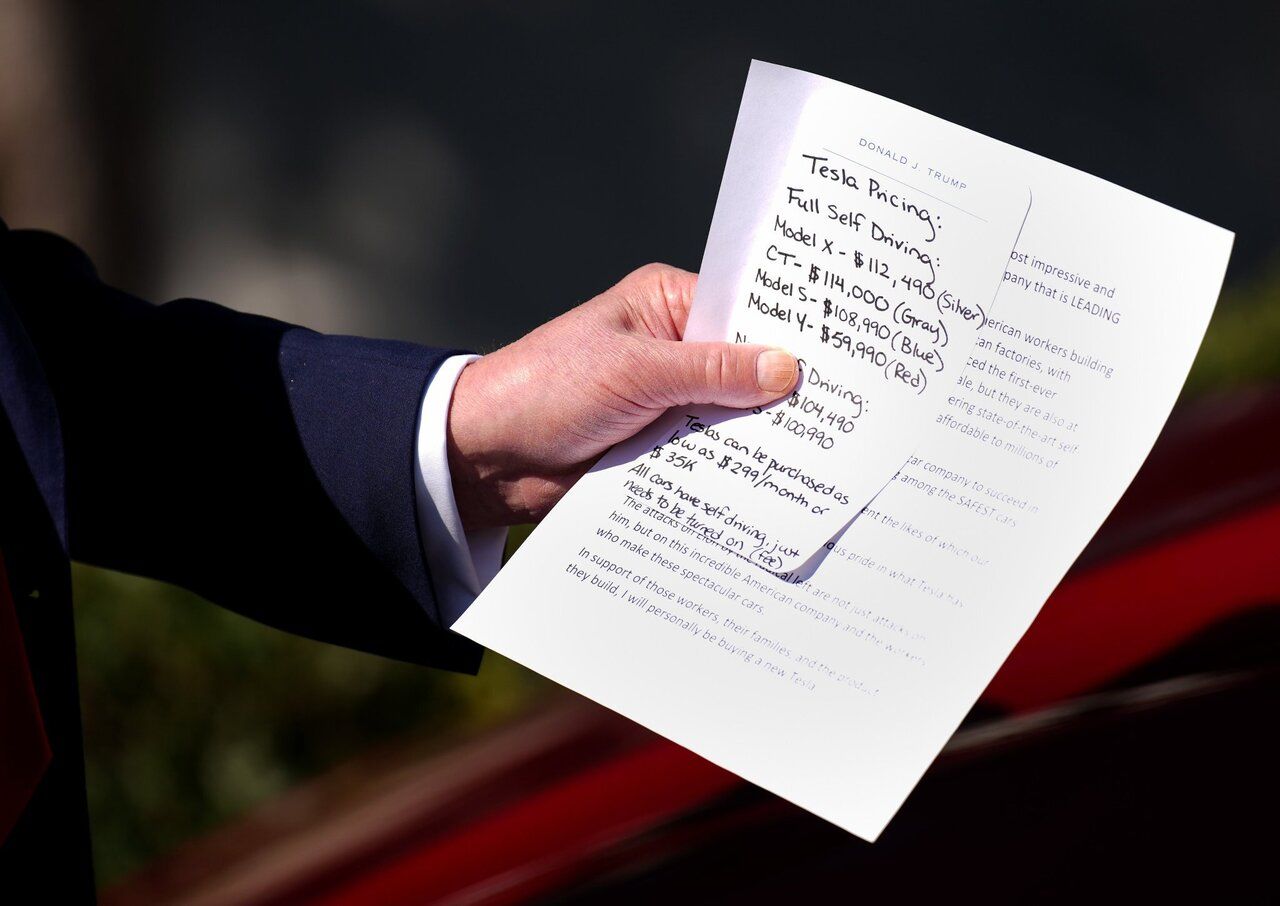 DONALD J. TRUMP
Tesla Pricing:
Full Self Driving:
Model X - $112,490 (Silver)
CT- $114,000 (Gray)
Model S- $108,990 (Blue)
Model Y- $59,990 (Red)
Driving:
$104,490
S -$100,990
Teslas can be purchased as
low as $299/month or
$35K
All cars have self driving, just
needs to be turned on (fee)
impressive and
that is LEADING
workers building
factories, with
the first-ever
but they are also at
state-of-the-art self
affordable to millions of
company to succeed in
among the SAFEST cars
the likes of which our
pride in what Tesla has
The attacks on left are not just attacks on
him, but on this incredible American company and the workers
who make these spectacular cars.
In support of those workers, their families, and the product
they build, I will personally be buying a new Tesla